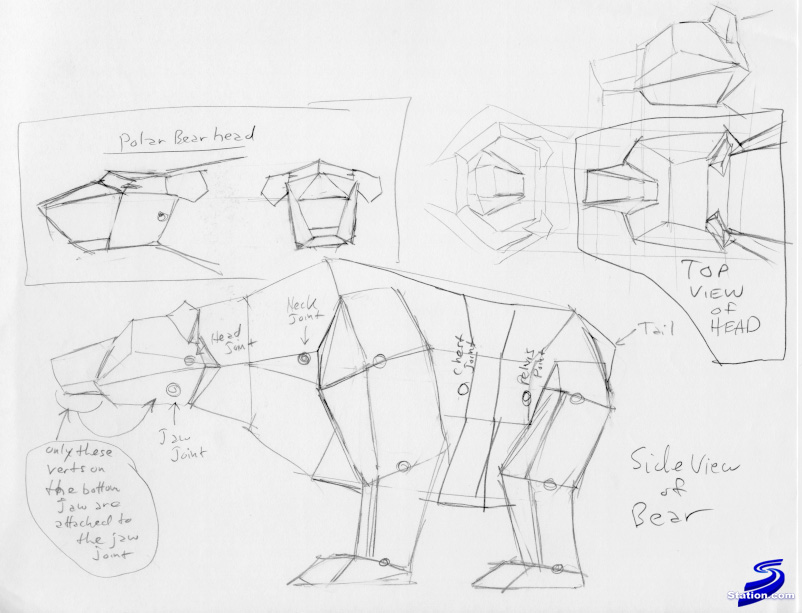 Polar Bear head
TOP
VIEW
of
HEAD
Neck
Joint
Head
Joint
Tail
Chest
Joint
Pelvis
Point
Jaw
Joint
only these
verts on
the bottom
Jaw are
attached to
the jaw
joint
Side View
of
Bear
Station.com